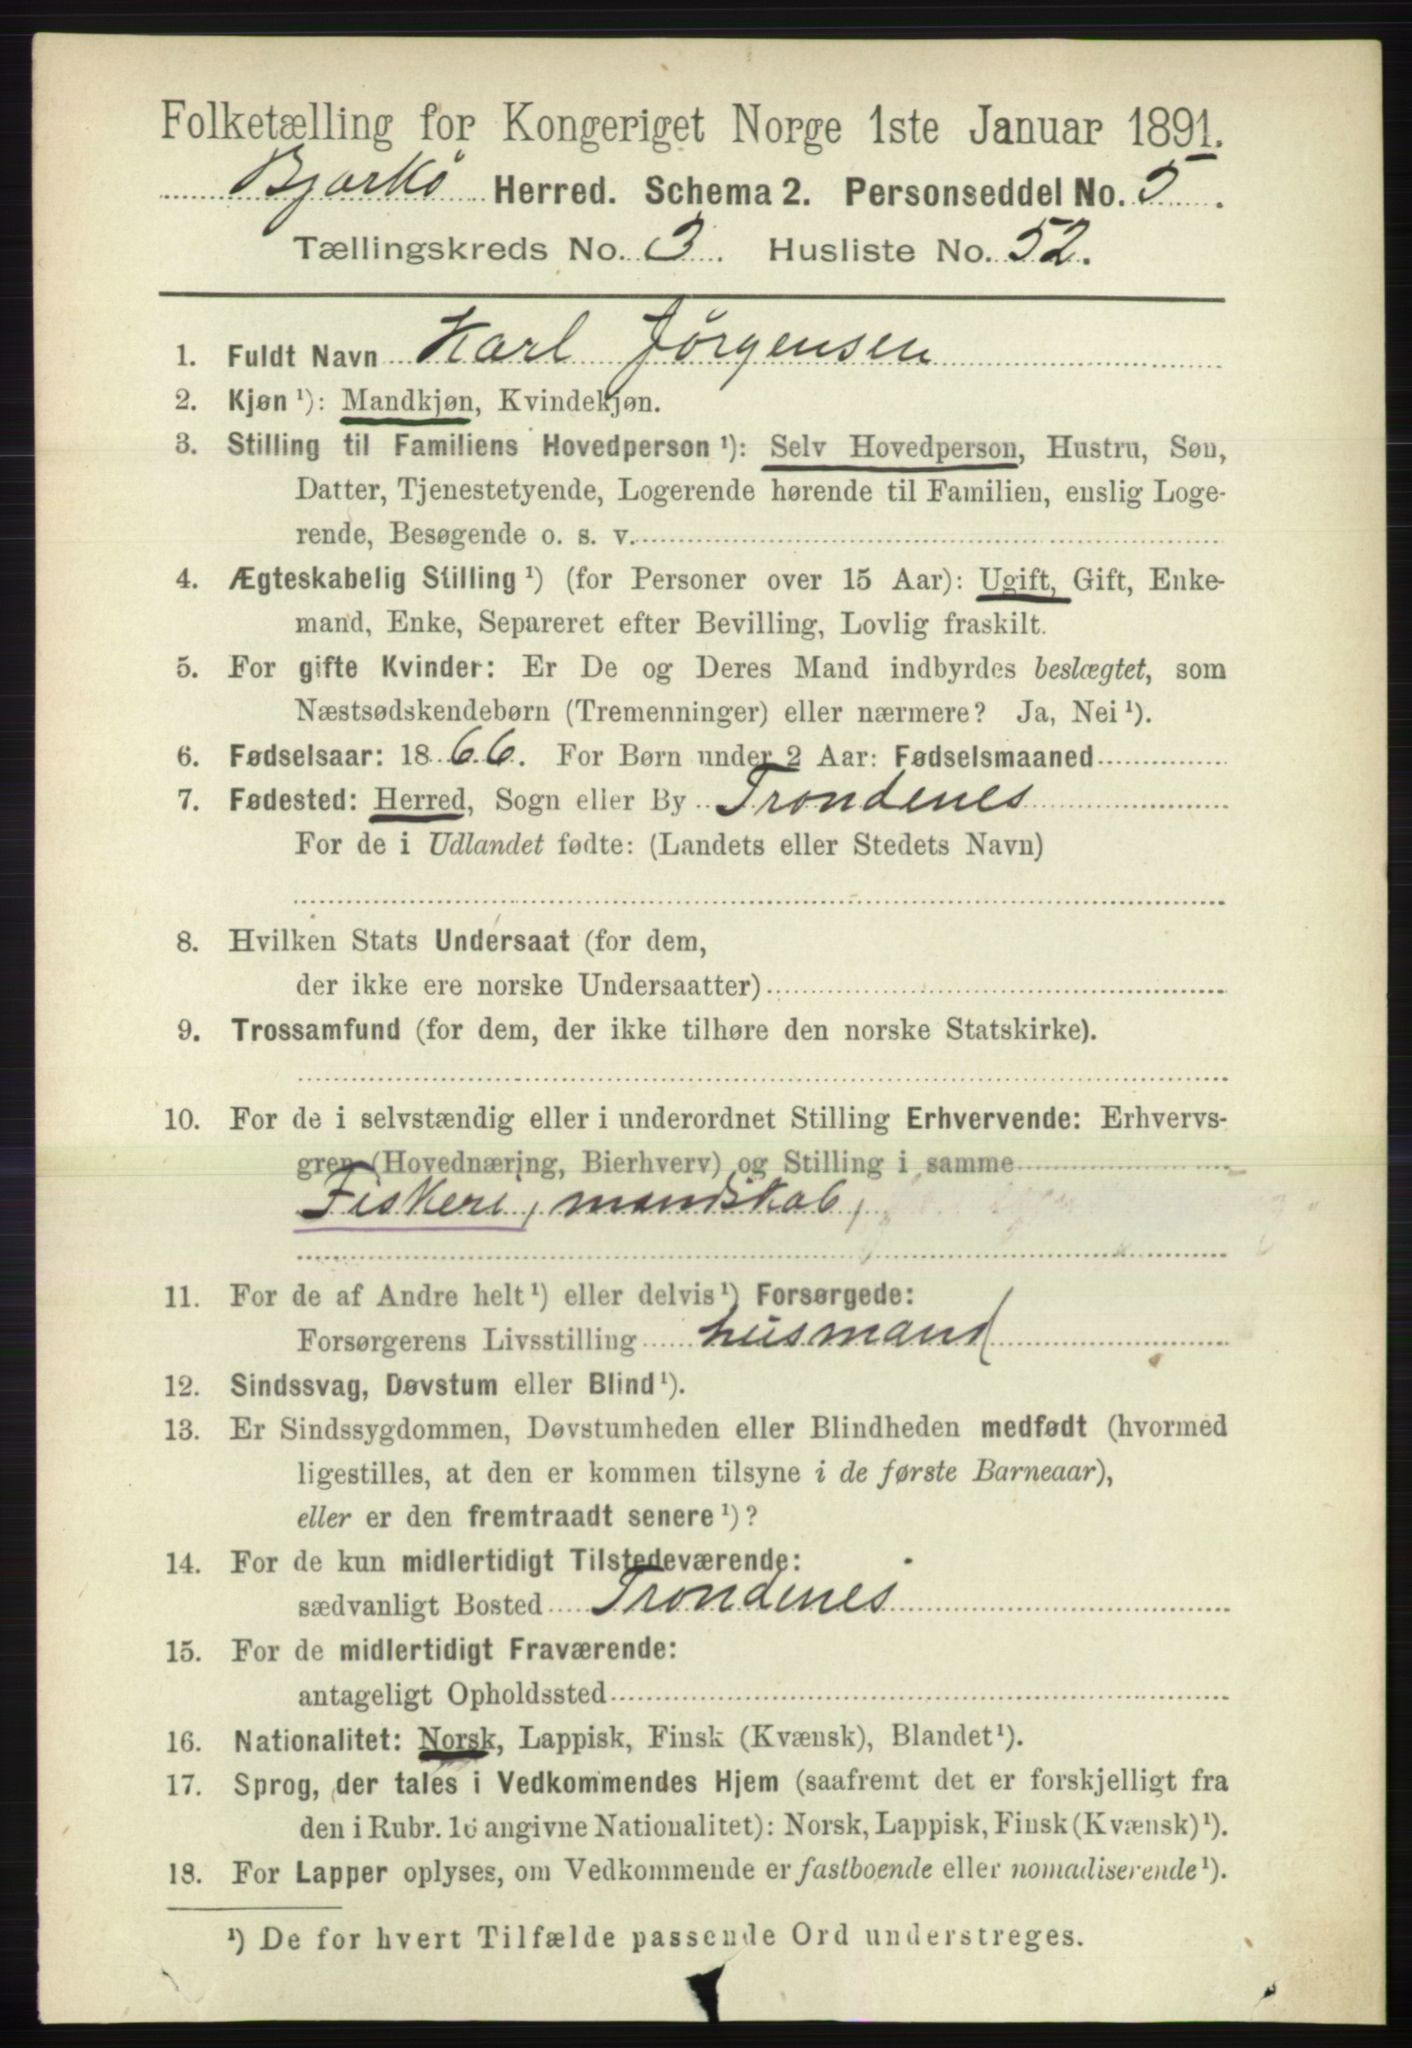 Folketælling for Kongeriget Norge 1ste Januar 1891.
Bjarkö Herred. Schema 2. Personseddel No. 5.
Tællingskreds No. 3. Husliste No. 52.
1. Fuldt Navn Karl Jørgensen
2. Kjøn ¹): Mandkjøn, Kvindekjøn.
3. Stilling til Familiens Hovedperson ¹): Selv Hovedperson, Hustru, Søn,
Datter, Tjenestetyende, Logerende hørende til Familien, enslig Loge-
rende, Besøgende o. s. v.
4. Ægteskabelig Stilling ¹) (for Personer over 15 Aar): Ugift, Gift, Enke-
mand, Enke, Separeret efter Bevilling, Lovlig fraskilt.
5. For gifte Kvinder: Er De og Deres Mand indbyrdes beslægtet, som
Næstsødskendebørn (Tremenninger) eller nærmere? Ja, Nei ¹).
6. Fødselsaar: 1866. For Børn under 2 Aar: Fødselsmaaned
7. Fødested: Herred, Sogn eller By Trondenes
For de i Udlandet fødte: (Landets eller Stedets Navn)
8. Hvilken Stats Undersaat (for dem,
der ikke ere norske Undersaatter)
9. Trossamfund (for dem, der ikke tilhøre den norske Statskirke).
10. For de i selvstændig eller i underordnet Stilling Erhvervende: Erhvervs-
gren (Hovednæring, Bierhverv) og Stilling i samme
Fiskeri, mandskab,
11. For de af Andre helt ¹) eller delvis ¹) Forsørgede:
Forsørgerens Livsstilling husmand
12. Sindssvag, Døvstum eller Blind ¹).
13. Er Sindssygdommen, Døvstumheden eller Blindheden medfødt (hvormed
ligestilles, at den er kommen tilsyne i de første Barneaar),
eller er den fremtraadt senere ¹)?
14. For de kun midlertidigt Tilstedeværende:
sædvanligt Bosted Trondenes
15. For de midlertidigt Fraværende:
antageligt Opholdssted
16. Nationalitet: Norsk, Lappisk, Finsk (Kvænsk), Blandet ¹).
17. Sprog, der tales i Vedkommendes Hjem (saafremt det er forskjelligt fra
den i Rubr. 16 angivne Nationalitet): Norsk, Lappisk, Finsk (Kvænsk) ¹).
18. For Lapper oplyses, om Vedkommende er fastboende eller nomadiserende ¹).
¹) De for hvert Tilfælde passende Ord understreges.